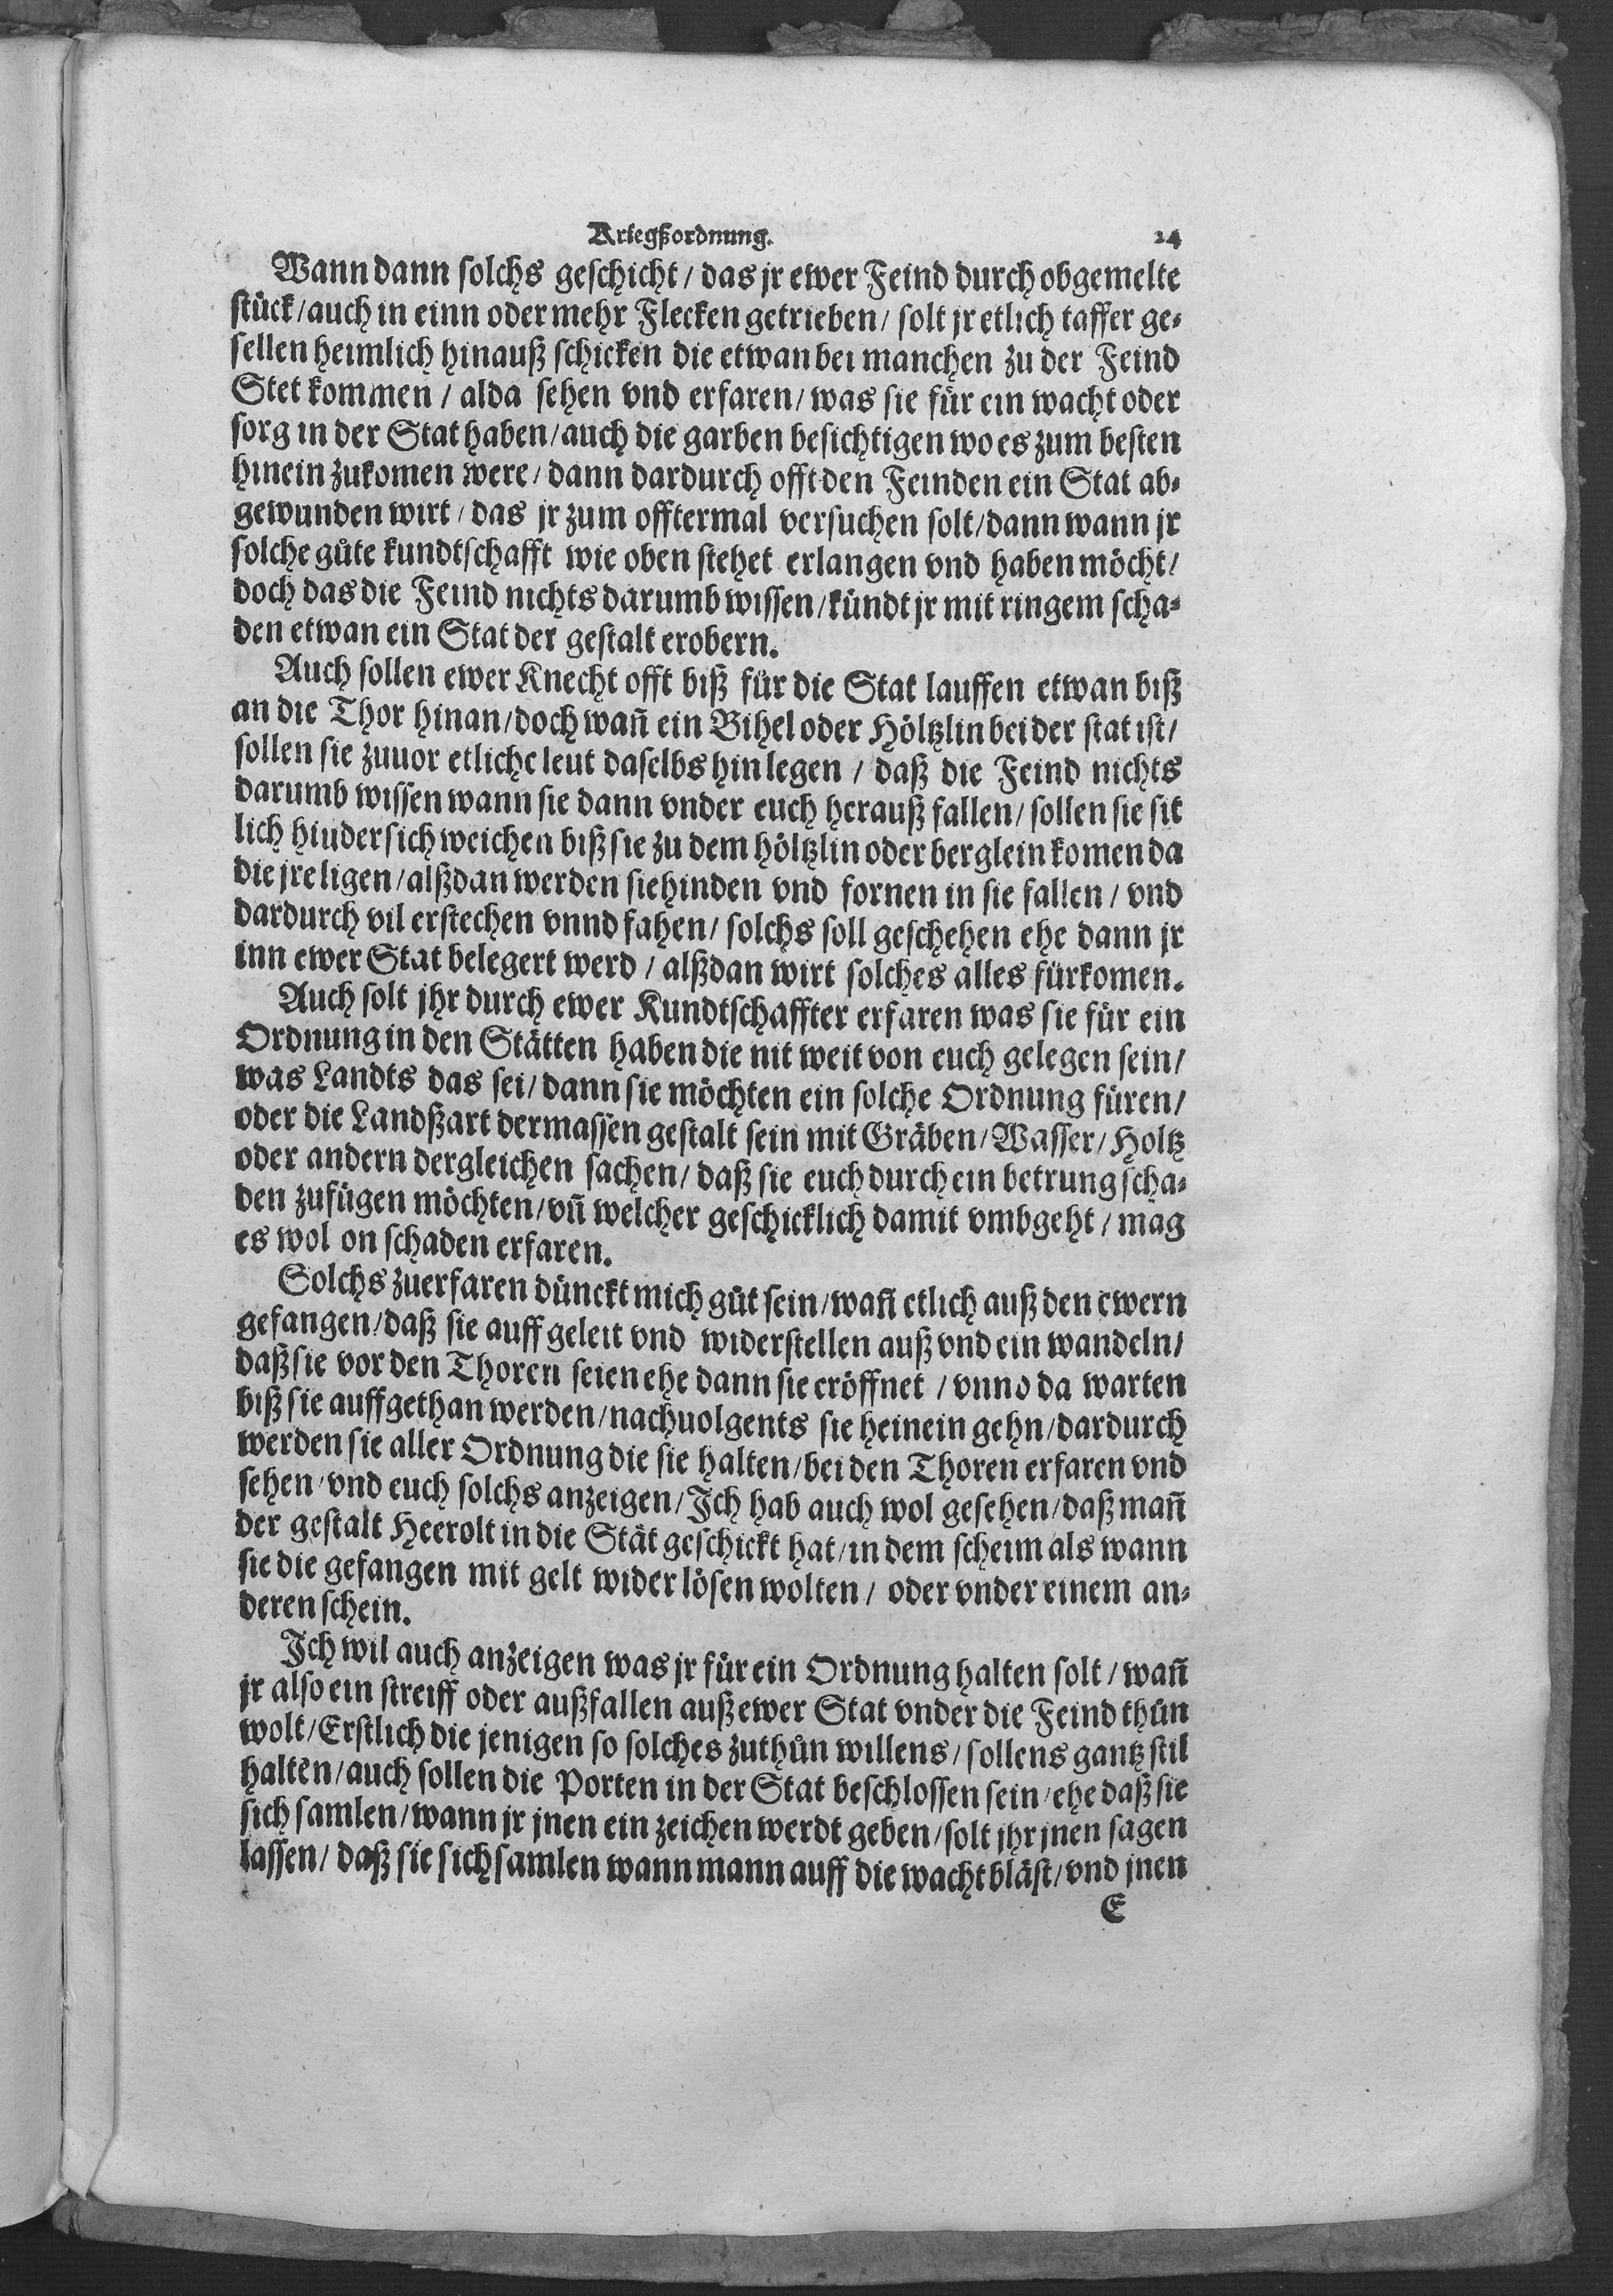 Kriegßordnung.
24
Wann dann solchs geschicht / das jr ewer Feind durch obgemelte
stück / auch in einn oder mehr Flecken getrieben / solt jr etlich taffer ge-
sellen heimlich hinauß schicken die etwan bei manchen zu der Feind
Stet kommen / alda sehen vnd erfaren / was sie für ein wacht oder
sorg in der Stat haben / auch die garben besichtigen wo es zum besten
hinein zukomen were / dann dardurch offt den Feinden ein Stat ab-
gewunden wirt / das jr zum offtermal versuchen solt / dann wann jr
solche gůte kundtschafft wie oben stehet erlangen vnd haben möcht /
doch das die Feind nichts darumb wissen / kündt jr mit ringem scha-
den etwan ein Stat der gestalt erobern.
Auch sollen ewer Knecht offt biß für die Stat lauffen etwan biß
an die Thor hinan / doch wañ ein Bihel oder Höltzlin bei der stat ist /
sollen sie zuuor etliche leut daselbs hin legen / daß die Feind nichts
darumb wissen wann sie dann vnder euch herauß fallen / sollen sie sit
lich hiudersich weichen biß sie zu dem höltzlin oder berglein komen da
die jre ligen / alßdan werden sie hinden vnd fornen in sie fallen / vnd
dardurch vil erstechen vnnd fahen / solchs soll geschehen ehe dann jr
inn ewer Stat belegert werd / alßdan wirt solches alles fürkomen.
Auch solt jhr durch ewer Kundtschaffter erfaren was sie für ein
Ordnung in den Stätten haben die nit weit von euch gelegen sein /
was Landts das sei / dann sie möchten ein solche Ordnung füren /
oder die Landßart dermassen gestalt sein mit Gräben / Wasser / Holtz
oder andern dergleichen sachen / daß sie euch durch ein betrung scha-
den zufügen möchten / vñ welcher geschicklich damit vmbgeht / mag
es wol on schaden erfaren.
Solchs zuerfaren dünckt mich gůt sein / wañ etlich auß den ewern
gefangen / daß sie auff geleit vnd widerstellen auß vnd ein wandeln /
daß sie vor den Thoren seien ehe dann sie eröffnet / vnnd da warten
biß sie auffgethan werden / nachuolgents sie heinein gehn / dardurch
werden sie aller Ordnung die sie halten / bei den Thoren erfaren vnd
sehen / vnd euch solchs anzeigen / Ich hab auch wol gesehen / daß mañ
der gestalt Heerolt in die Stät geschickt hat / in dem scheim als wann
sie die gefangen mit gelt wider lösen wolten / oder vnder einem an-
deren schein.
Ich wil auch anzeigen was jr für ein Ordnung halten solt / wañ
jr also ein streiff oder außfallen auß ewer Stat vnder die Feind thůn
wolt / Erstlich die jenigen so solches zuthůn willens / sollens gantz stil
halten / auch sollen die Porten in der Stat beschlossen sein / ehe daß sie
sich samlen / wann jr jnen ein zeichen werdt geben / solt jhr jnen sagen
lassen / daß sie sich samlen wann mann auff die wacht bläst / vnd jnen
E